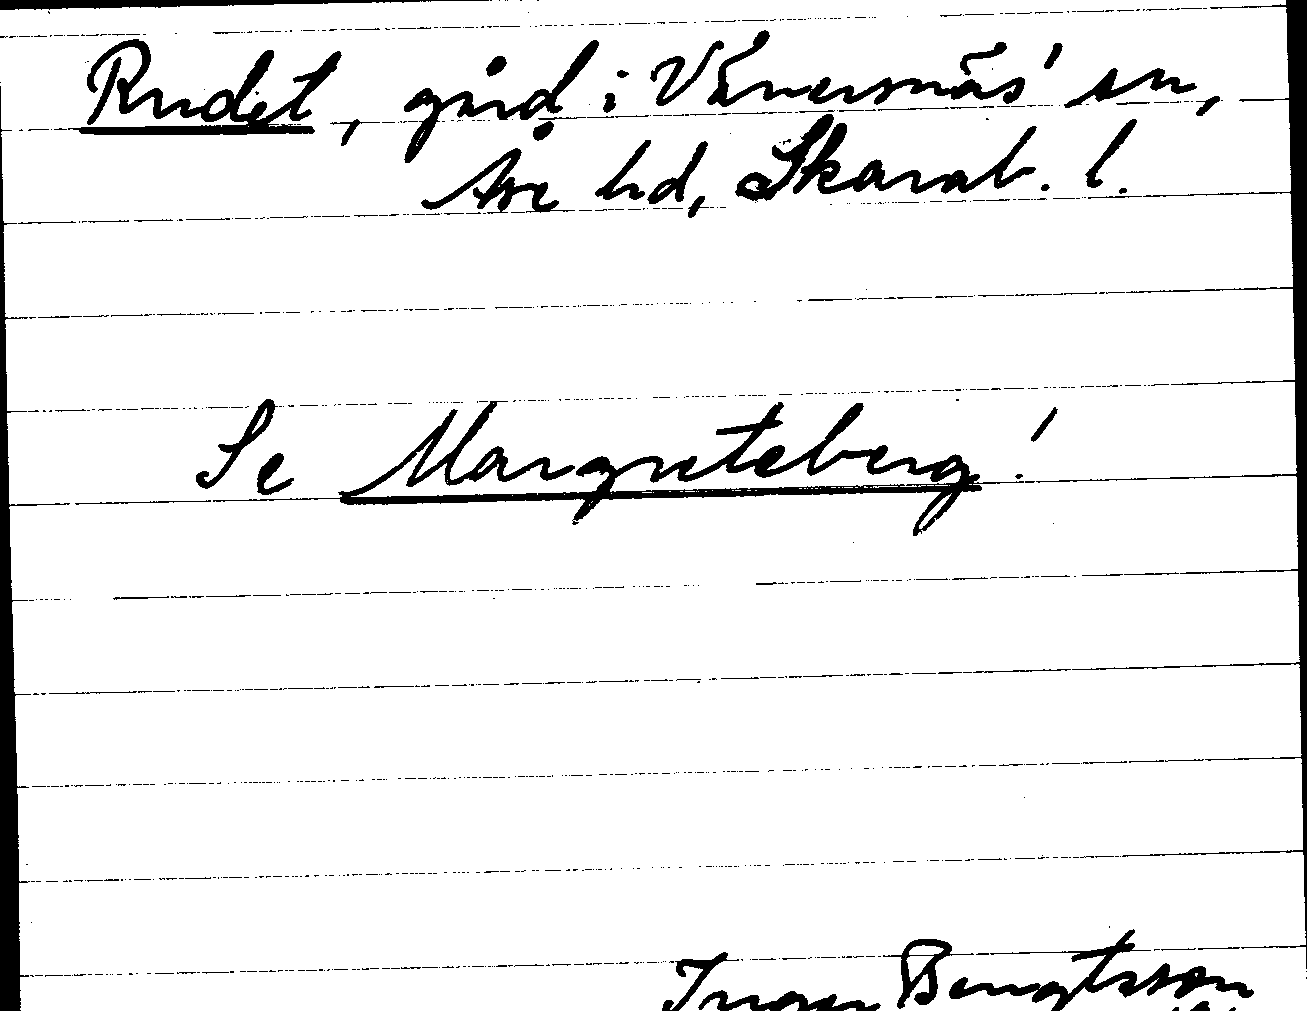 Rudet, gård i Vänersnäs' sn,
Åse hd, Skarab. l.
Se Margreteberg!
Inger Bengtsson